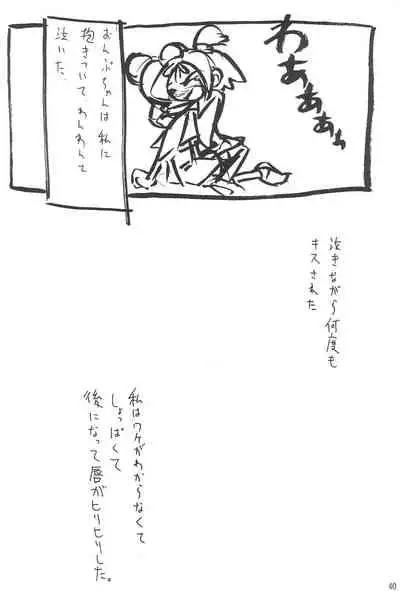 わあぁぁぁ
おんぷちゃんは私に
抱きついてわんわんて
泣いた
泣きながら何度も
キスされた
私はワケがわからなくて
しょっぱくて
後になって唇がヒリヒリした。
40